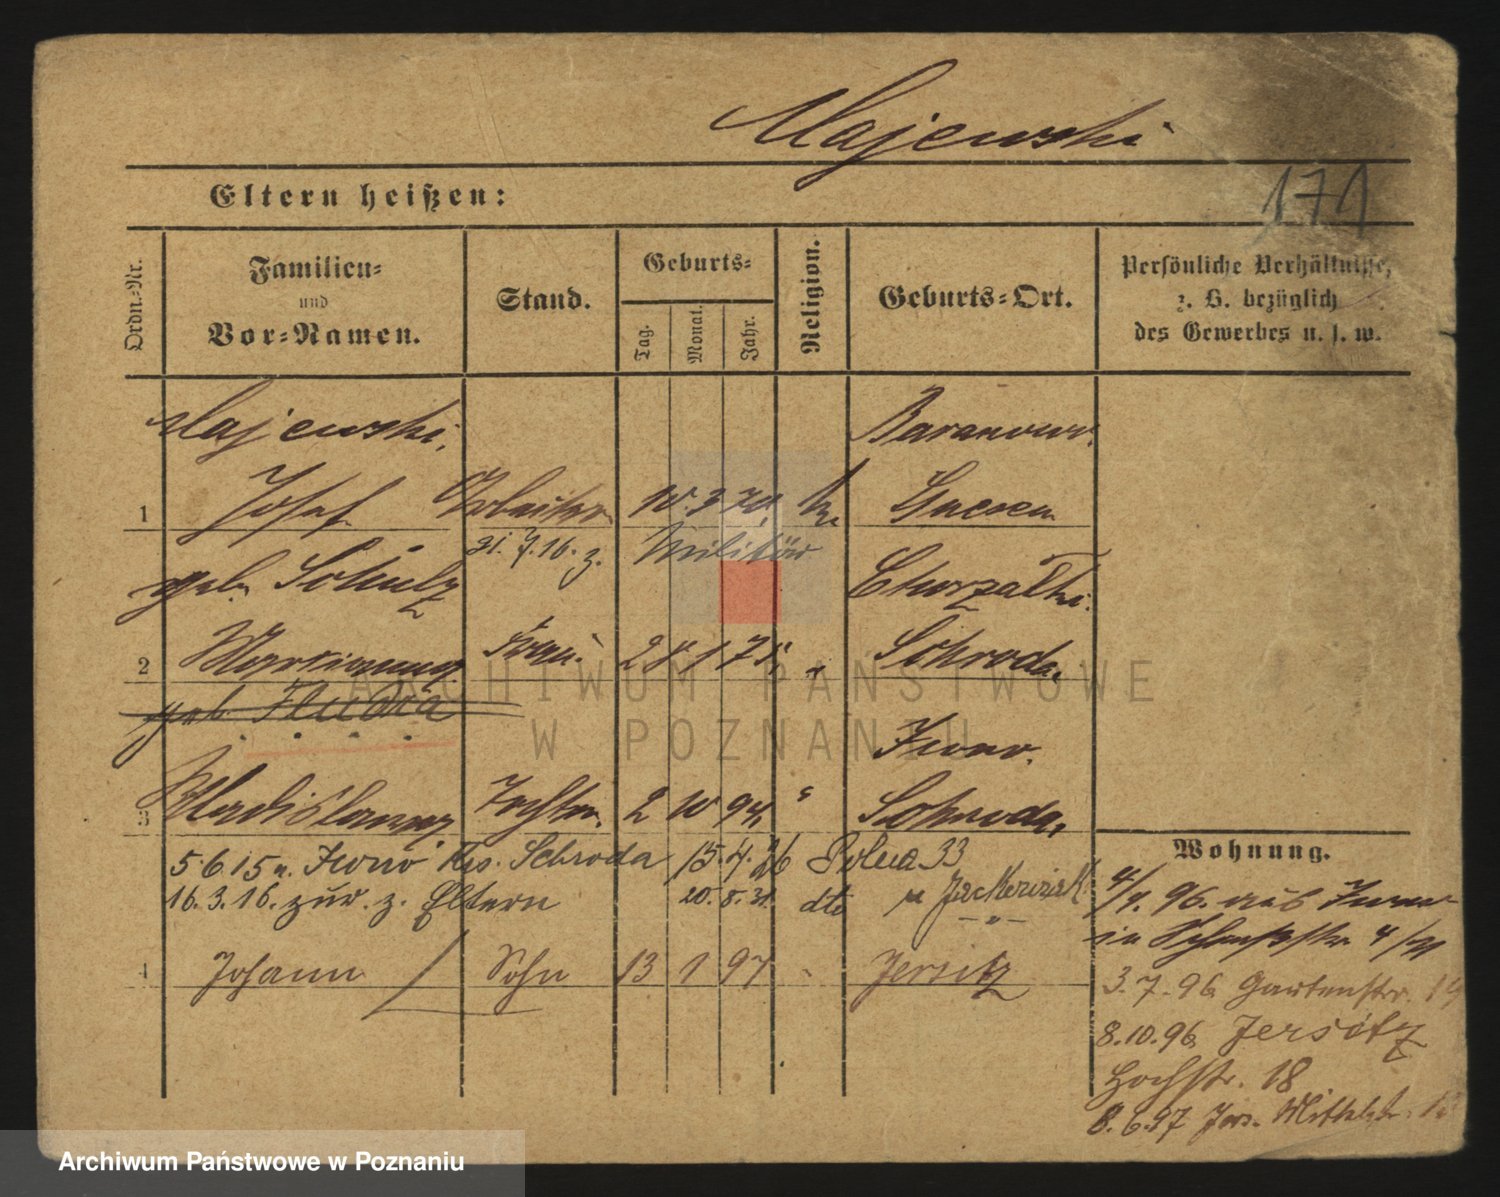 Majewski
171
Eltern heißen:
Ordn.-Nr.
Familien-
und
Vor-Namen.
Stand.
Geburts-
Tag.
Monat.
Jahr.
Religion.
Geburts-Ort.
Persönliche Verhältnisse,
z. B. bezüglich
des Gewerbes u. s. w.
Majewski, Baranowo.
1 Josef Arbeiter 10. 3 70, Gnesen
31. 7. 16. z. Militär
geb. Schulz
2 Marianna Frau. 28 1 75, " Schroda.
geb. Hudra
Iwno.
3 Wladislawa Tochter. 2 10 94, " Schroda,
5.6.15 n. Iwno Krs. Schroda 15.4.26 Polna 33
16.3.16. zur. z. Eltern 20. 8. 31. dto
4 Johann Sohn 13 1 97 Jersitz
Wohnung.
4/4. 96. aus Iwno
in
3. 7. 96 Gartenstr. 19
8.10.96 Jersitz
Hochstr. 18
8.6.97 Jers. Mittelstr.
ARCHIWUM PAŃSTWOWE
W POZNANIU
Archiwum Państwowe w Poznaniu